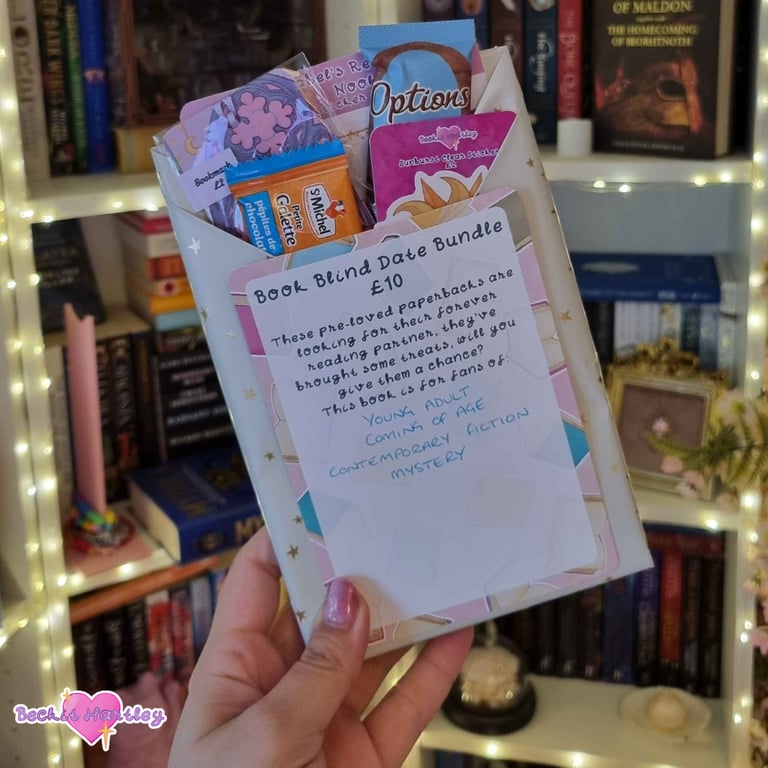 OF MALDON
together with
THE HOMECOMING
OF BEORHTNOTH
Options
Bookmark
£2
Beckit Hartley
Sunburst Clear Sticker
£2
St Michel
Petite
Galette
pépites de
chocolat
Book Blind Date Bundle
£10
These pre-loved paperbacks are
looking for their forever
reading partner, they've
brought some treats, will you
give them a chance?
This book is for fans of:
YOUNG ADULT
COMING OF AGE
CONTEMPORARY FICTION
MYSTERY
Beckit Hartley